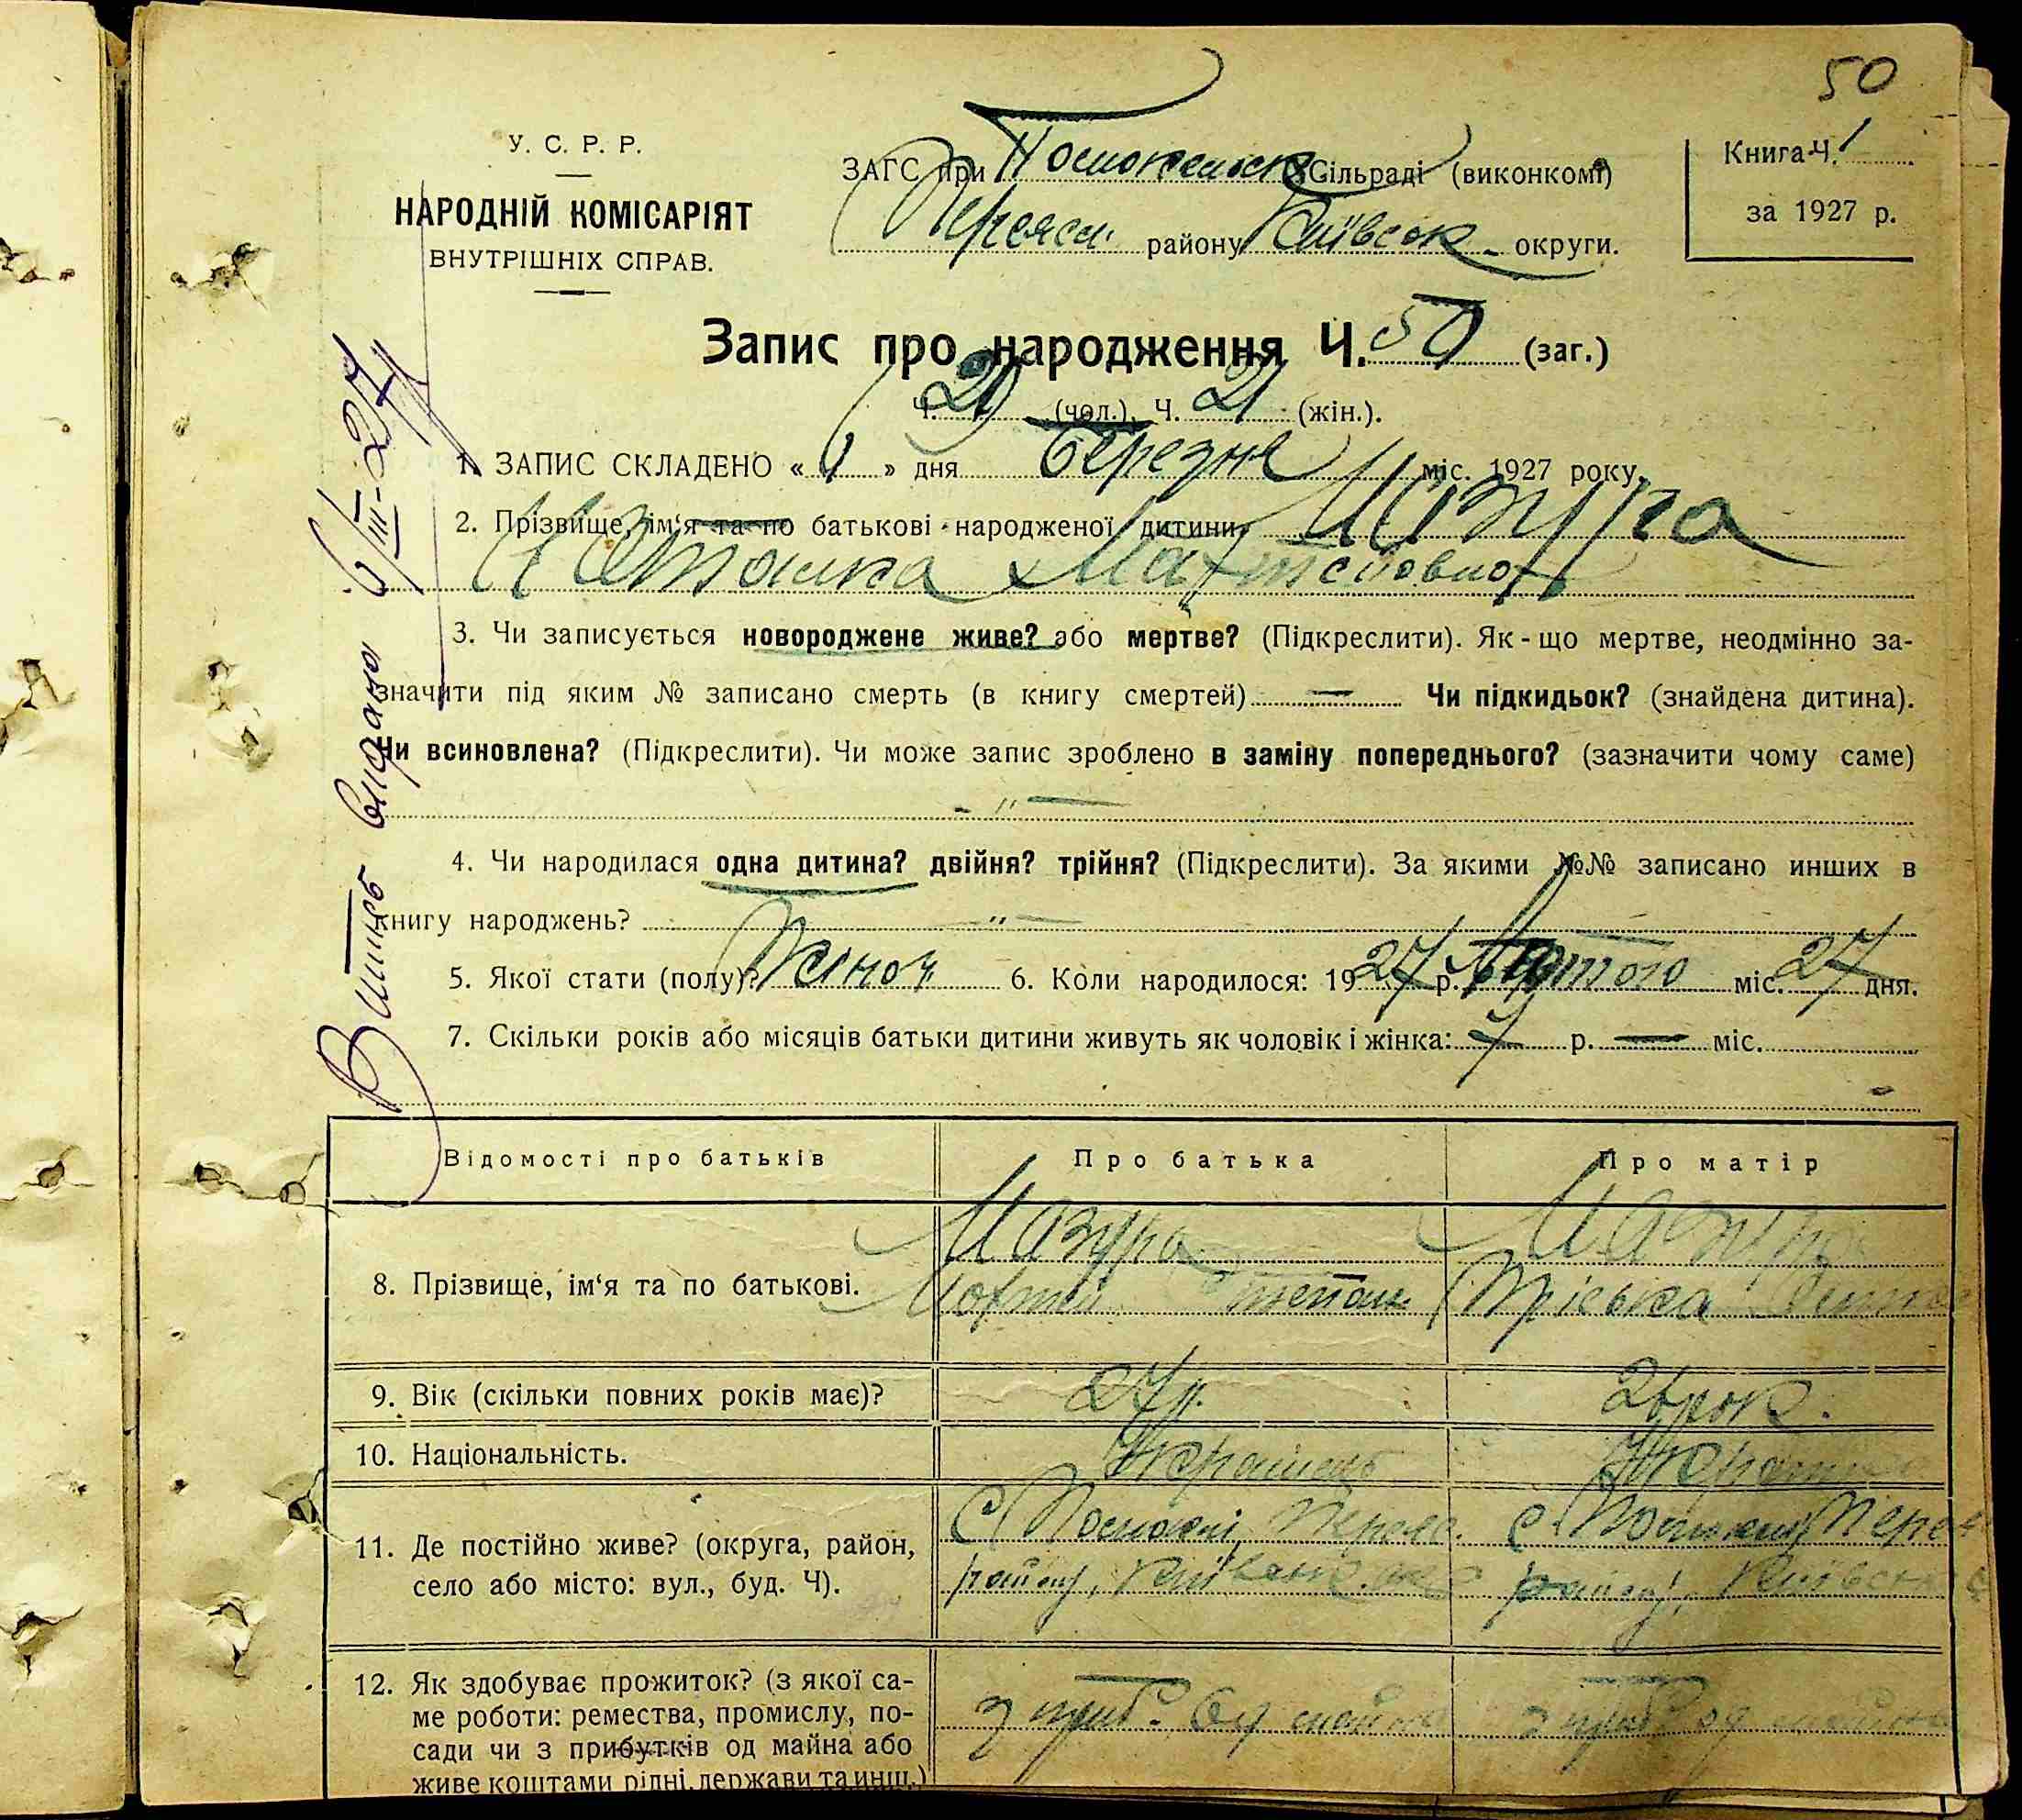 50
У. С. Р. Р.
НАРОДНІЙ КОМІСАРІЯТ
ВНУТРІШНІХ СПРАВ.
ЗАГС при Сільраді (виконкомі)
Переясл. району Київськ. округи.
Книга Ч. 1
за 1927 р.
Запис про народження Ч. 50 (заг.)
Ч. (чол.). Ч. 21 (жін.).
1. ЗАПИС СКЛАДЕНО « 1 » дня Березня міс. 1927 року.
2. Прізвище, ім‘я та по батькові народженої дитини Мазура
Наташка Мартеївна
3. Чи записується новороджене живе? або мертве? (Підкреслити). Як-що мертве, неодмінно за-
значити під яким № записано смерть (в книгу смертей) — Чи підкидьок? (знайдена дитина).
Чи всиновлена? (Підкреслити). Чи може запис зроблено в заміну попереднього? (зазначити чому саме)
- " —
4. Чи народилася одна дитина? двійня? трійня? (Підкреслити). За якими №№ записано инших в
книгу народжень? " —
5. Якої стати (полу)? Жіноч 6. Коли народилося: 1927 р. Лютого міс. 27 дня.
7. Скільки років або місяців батьки дитини живуть як чоловік і жінка: 7 р. — міс.
Витяг видано 6/III-27
Відомості про батьків
Про батька
Про матір
8. Прізвище, ім‘я та по батькові.
Мазура
Степан
Мазура
Пріська
9. Вік (скільки повних років має)?
27 р.
26 рок.
10. Національність.
Українець
Україн
11. Де постійно живе? (округа, район,
село або місто: вул., буд. Ч).
С. Переяс.
району, Київськ. окр
с. Переяс
району, Київськ
12. Як здобуває прожиток? (з якої са-
ме роботи: ремества, промислу, по-
сади чи з прибутків од майна або
живе коштами рідні, держави та инш.)
з приб.
з приб.